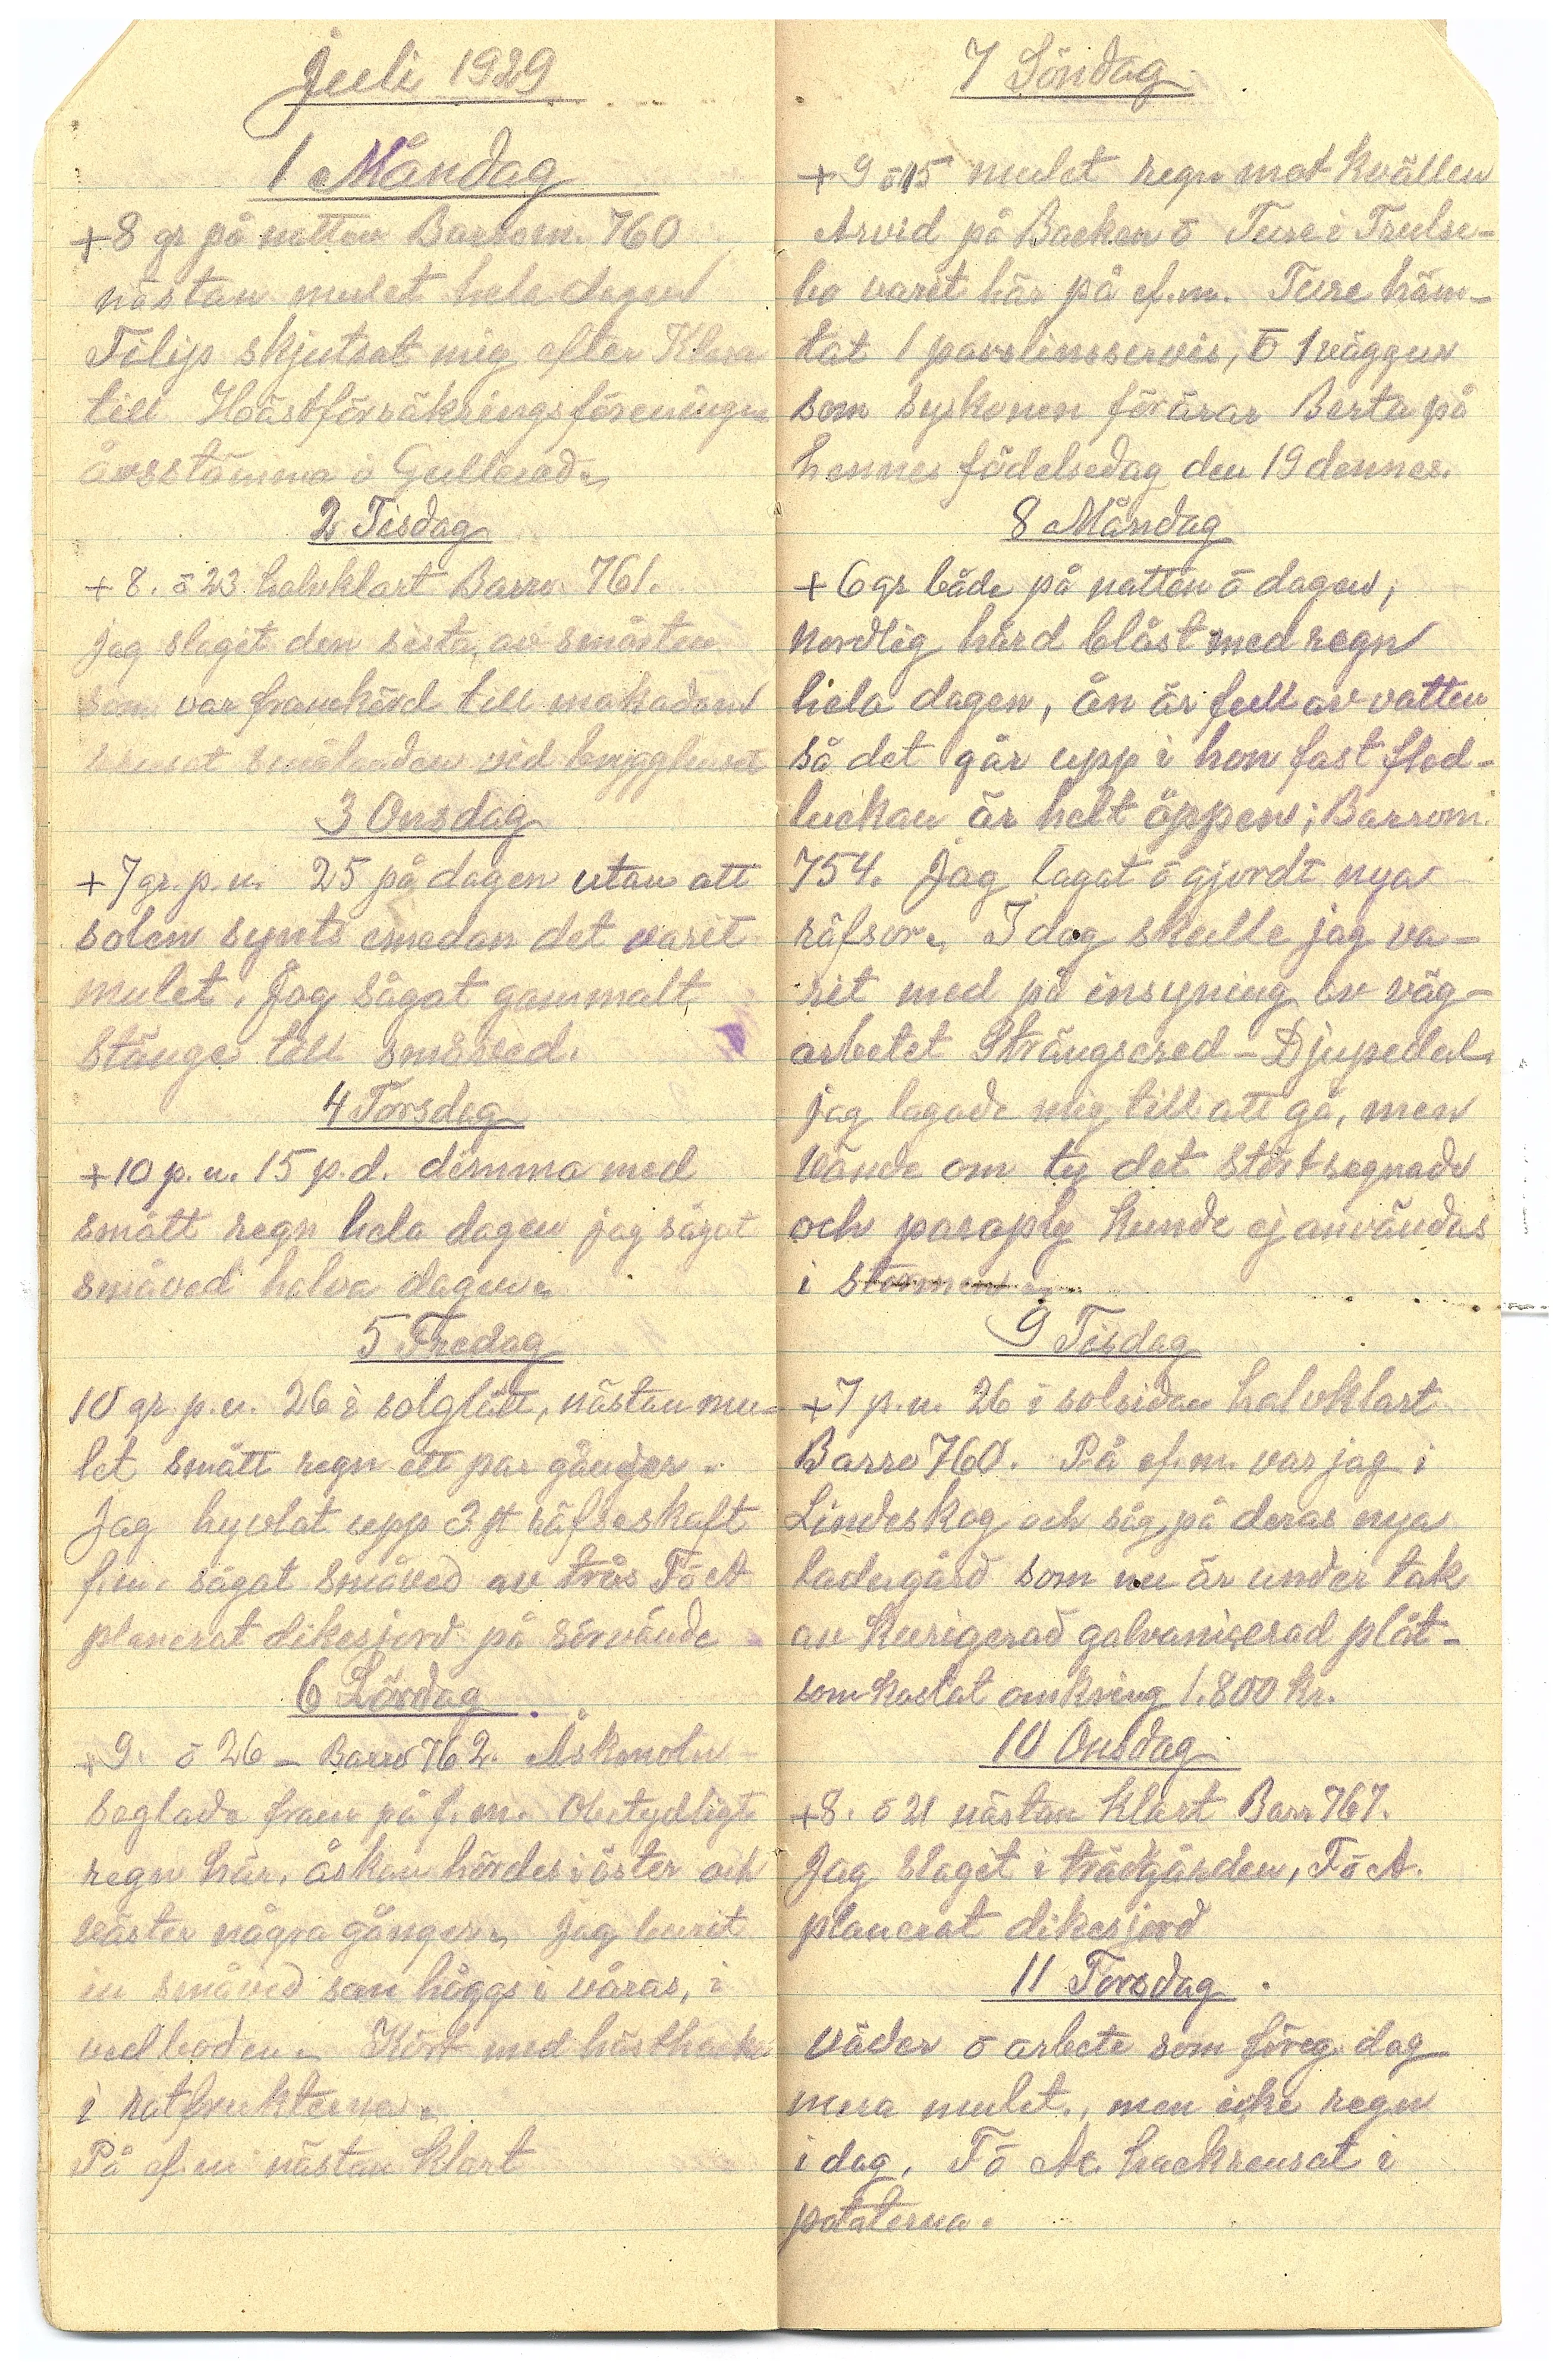 Juli 1929
1 Måndag
+8 gr på natten Barrom. 760
nästan mulet hela dagen
Filip skjutsat mig efter Klara
till Hästförsäkringsföreningens
årsstämma i Gullered.
2 Tisdag
+8. ō 23 halvklart Barro 761.
jag slagit den sista av småsten
som var framkörd till makadam
rensat smålandan ved brygghuset
3 Onsdag
+7 gr. p.n. 25 på dagen utan att
solen synts emedan det varit
mulet. Jag sågat gammalt
stänge till småved.
4 Torsdag
+10 p.n. 15 p.d. dimma med
smått regn hela dagen jag sågat
småved halva dagen.
5 Fredag
10 gr. p.n. 26 i solglätt, nästan mu-
let smått regn ett par gånger.
Jag hyvlat upp 3 st räfseskaft
f.m. sågat småved av trås F ō A
planerat dikesjord på sörvände
6 Lördag
+9. ō 26 – Barro 762. Åskmoln
seglade fram på f.m. Obetydligt
regn här, åskan hördes i öster och
väster några gånger. Jag burit
in småved som höggs i våras, i
vedboden. Kört med hästhacka
i rotfrukterna.
På ef.m nästan klart
7 Söndag
+9 ō 15 mulet regn mot kvällen
Arvid på Backen ō Ture i Trulse-
bo varit här på ef.m. Ture häm-
tat 1 porslinsservis, ō 1 väggur
som syskonen förärar Berta på
hennes födelsedag den 19 dennes.
8 Måndag
+6 gr både på natten ō dagen,
Nordlig hård blåst med regn
hela dagen, ån är full av vatten
så det går upp i hon fast flod-
luckan är helt öppen; Barrom.
754. Jag lagat ō gjordt nya
räfsor. I dag skulle jag va-
rit med på insyning av väg-
arbetet Strängsered – Djupedal.
jag lagade mig till att gå, men
vände om ty det störtregnade
och paraply kunde ej användas
i stormen.
9 Tisdag
+7 p.n. 26 i solsidan halvklart
Barro 760. På ef.m. var jag i
Lindeskog och såg på deras nya
ladugård som nu är under tak
av kurigerad galvaniserad plåt-
som kostat omkring 1.800 kr.
10 Onsdag
+8. ō 21 nästan klart Barr 767.
Jag slagit i trädgården, F ō A.
planerat dikesjord
11 Torsdag.
väder ō arbete som föreg. dag
mera mulet., men icke regn
i dag. F ō A. hackrensat i
potaterna.